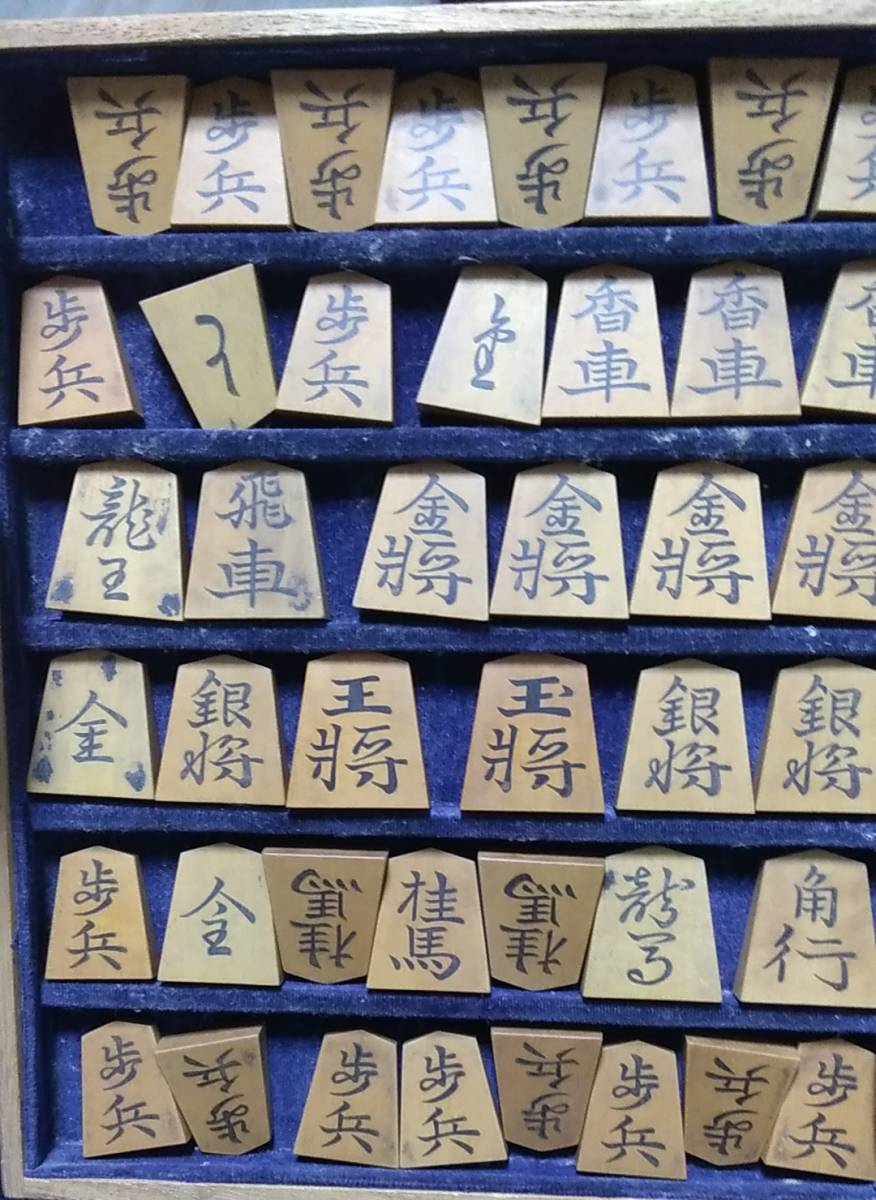 歩兵 歩兵 歩兵 歩兵 歩兵 歩兵 歩兵 歩兵
歩兵 と 歩兵 香車 香車 香車
龍王 飛車 金將 金將 金將 金將
全 銀将 王將 玉將 銀将 銀将
歩兵 全 桂馬 桂馬 桂馬 龍馬 角行
歩兵 歩兵 歩兵 歩兵 歩兵 歩兵 歩兵 歩兵